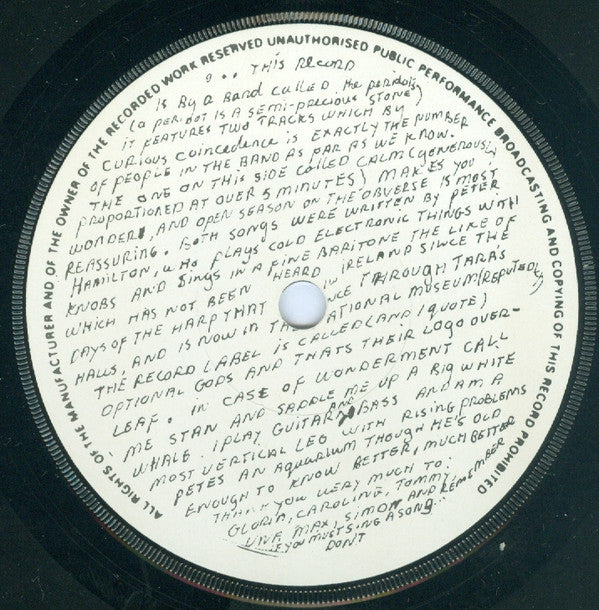 ALL RIGHTS OF THE MANUFACTURER AND OF THE OWNER OF THE RECORDED WORK RESERVED UNAUTHORISED PUBLIC PERFORMANCE BROADCASTING AND COPYING OF THIS RECORD PROHIBITED
THIS RECORD
IS BY A BAND CALLED THE PERIDOTS
(A PERIDOT IS A SEMI-PRECIOUS STONE)
IT FEATURES TWO TRACKS WHICH BY
CURIOUS COINCEDENCE IS EXACTLY THE NUMBER
OF PEOPLE IN THE BAND AS FAR AS WE KNOW.
THE ONE ON THIS SIDE CALLED CALM (GENEROUSLY
PROPORTIONED AT OVER 5 MINUTES) MAKES YOU
WONDER, AND OPEN SEASON ON THE OBVERSE IS MOST
REASSURING. BOTH SONGS WERE WRITTEN BY PETER
HAMILTON, WHO PLAYS COLD ELECTRONIC THINGS WITH
KNOBS AND SINGS IN A FINE BARITONE THE LIKE OF
WHICH HAS NOT BEEN HEARD IN IRELAND SINCE THE
DAYS OF THE HARP THAT ONCE THROUGH TARA'S
HALLS, AND IS NOW IN THE NATIONAL MUSEUM (REPUTEDLY)
THE RECORD LABEL IS CALLED (AND I QUOTE)
OPTIONAL GODS AND THATS THEIR LOGO OVER-
LEAF. IN CASE OF WONDERMENT CALL
ME STAN AND SADDLE ME UP A BIG WHITE
WHALE. I PLAY GUITAR AND BASS AND AM A
MOST VERTICAL LEO WITH RISING PROBLEMS
PETES AN AQUARIUM THOUGH HE'S OLD
ENOUGH TO KNOW BETTER, MUCH BETTER
THANK YOU VERY MUCH TO:
GLORIA, CAROLINE, TOMMY,
UNA, MAX, SIMON, AND REMEMBER
IF YOU MUST SING A SONG...
DON'T